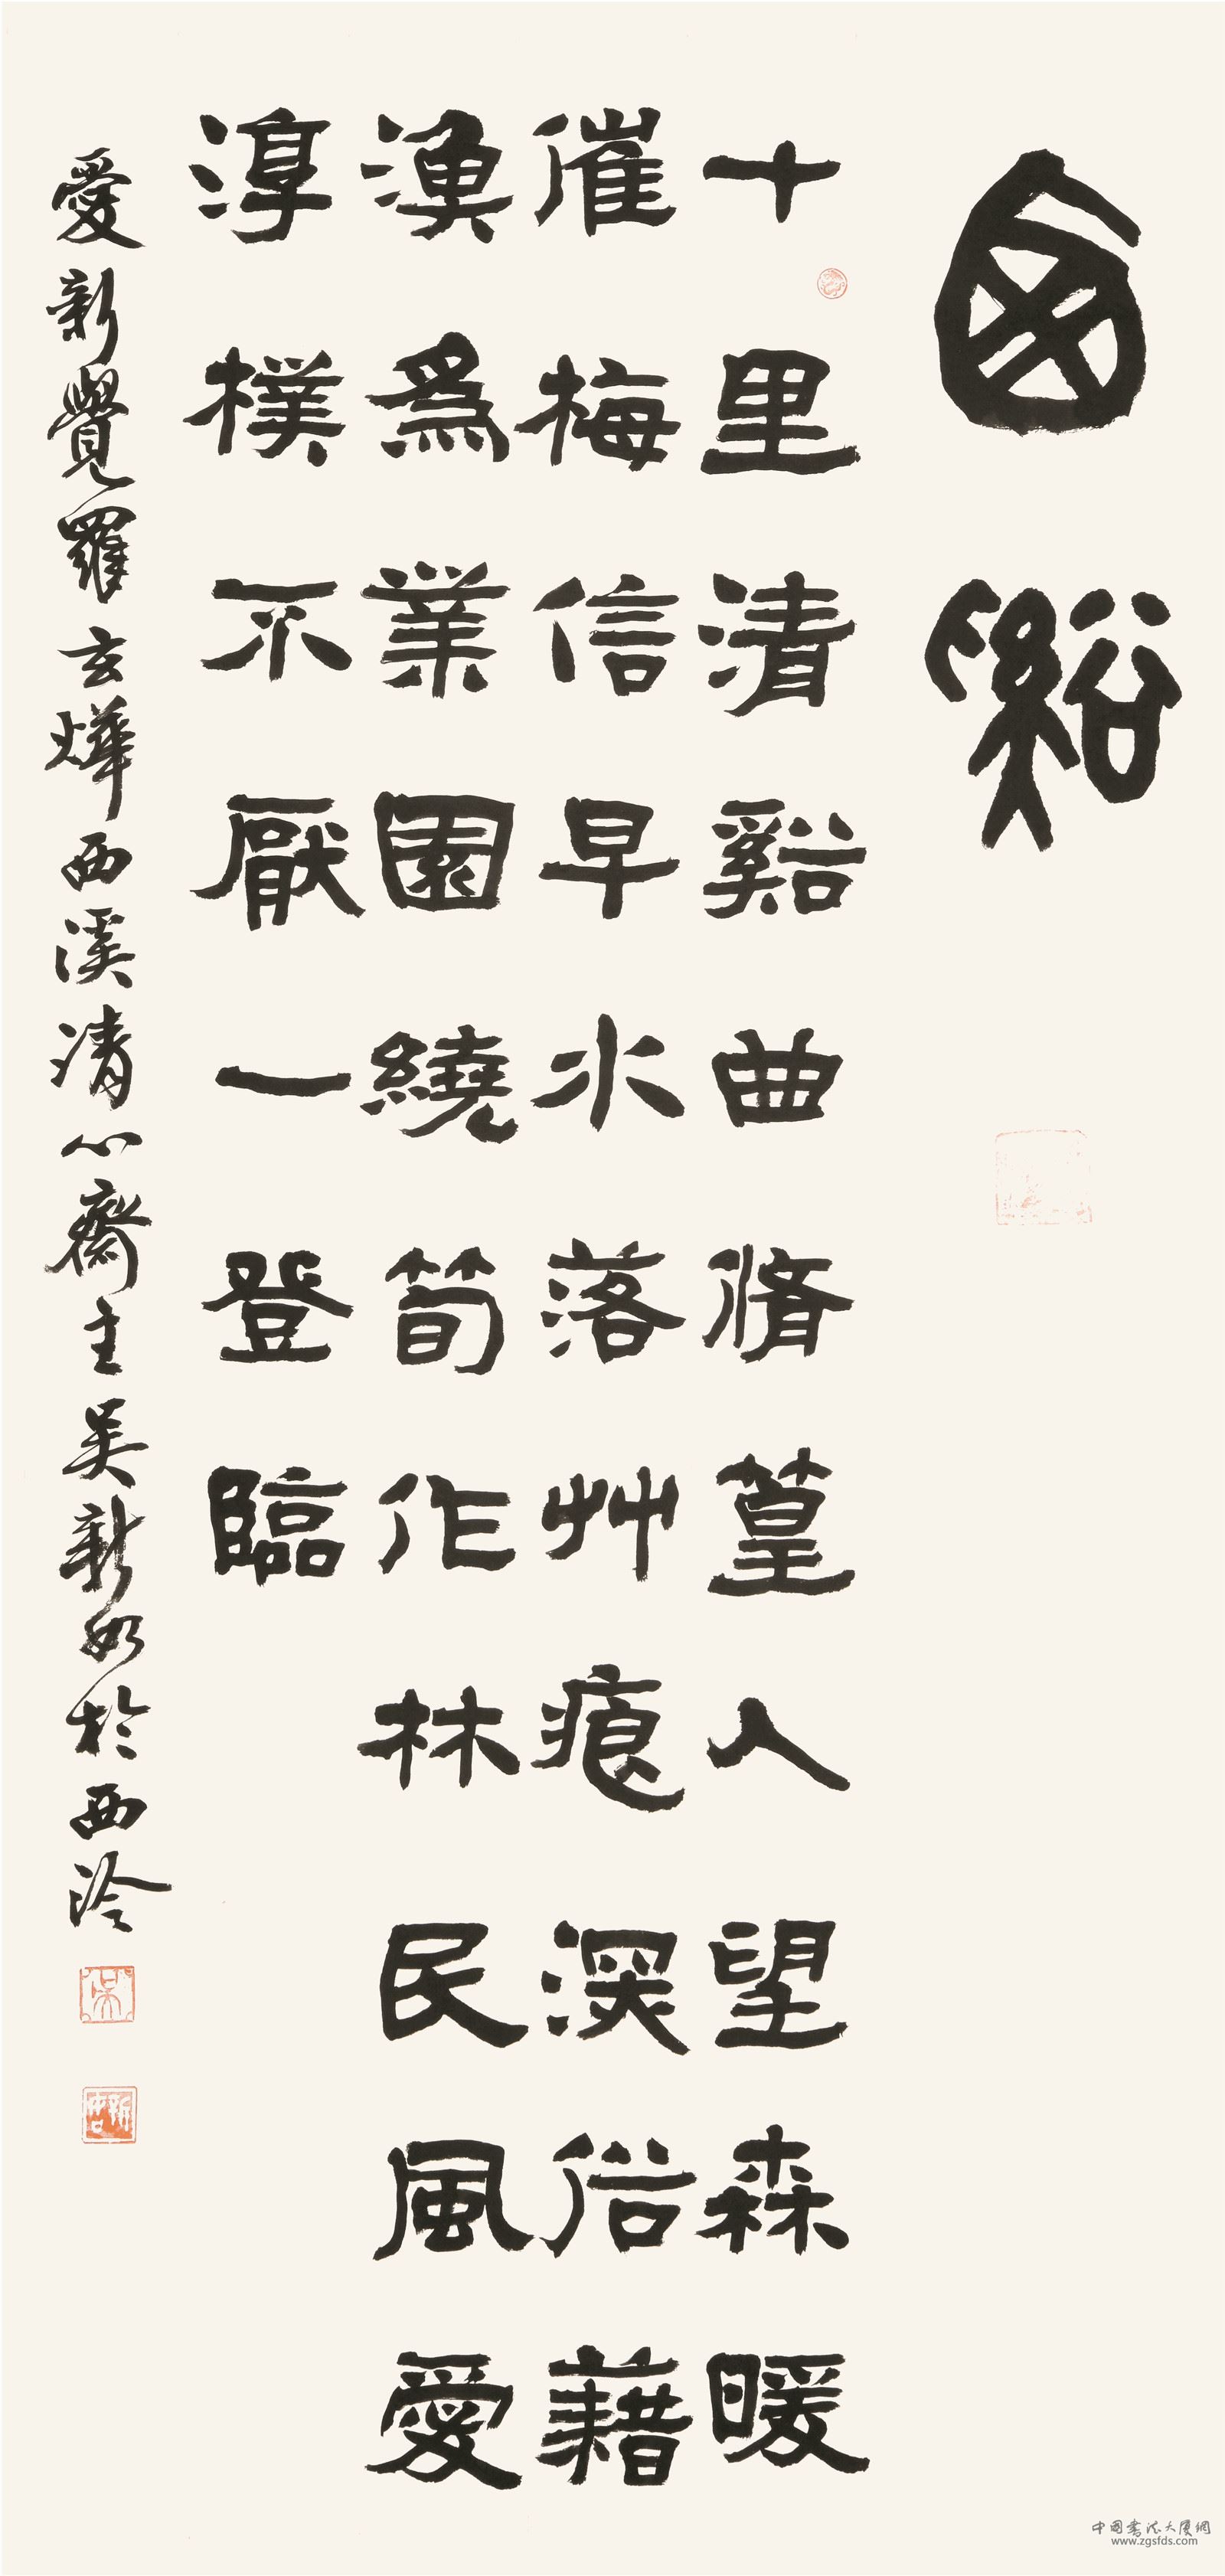 西谿
十里清谿曲脩篁人望森暖
催梅信早水落艸痕深俗藉
漁爲業園繞筍作林民風愛
淳樸不厭一登臨
愛新覺羅玄燁西溪清心齋主吴新如於西泠
中国书法大厦網
www.zgsfds.com